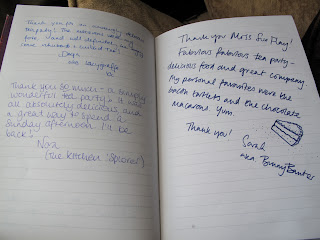 Thank you for an amazingly
tea party! The
time and well
Thank you so much - a totally
wonderful tea party - it was
all absolutely delicious and
a great way to spend a
Sunday afternoon. I'll be
back!
Nora
(The Kitchen
Thank you Miss Sue Flay!
Fabulous fabulous tea party -
delicious food and great company
My personal favorites were the
bacon tartlets and the chocolate
macarons. Yum.
Thank you!
Sarah
aka. BunnyBanter